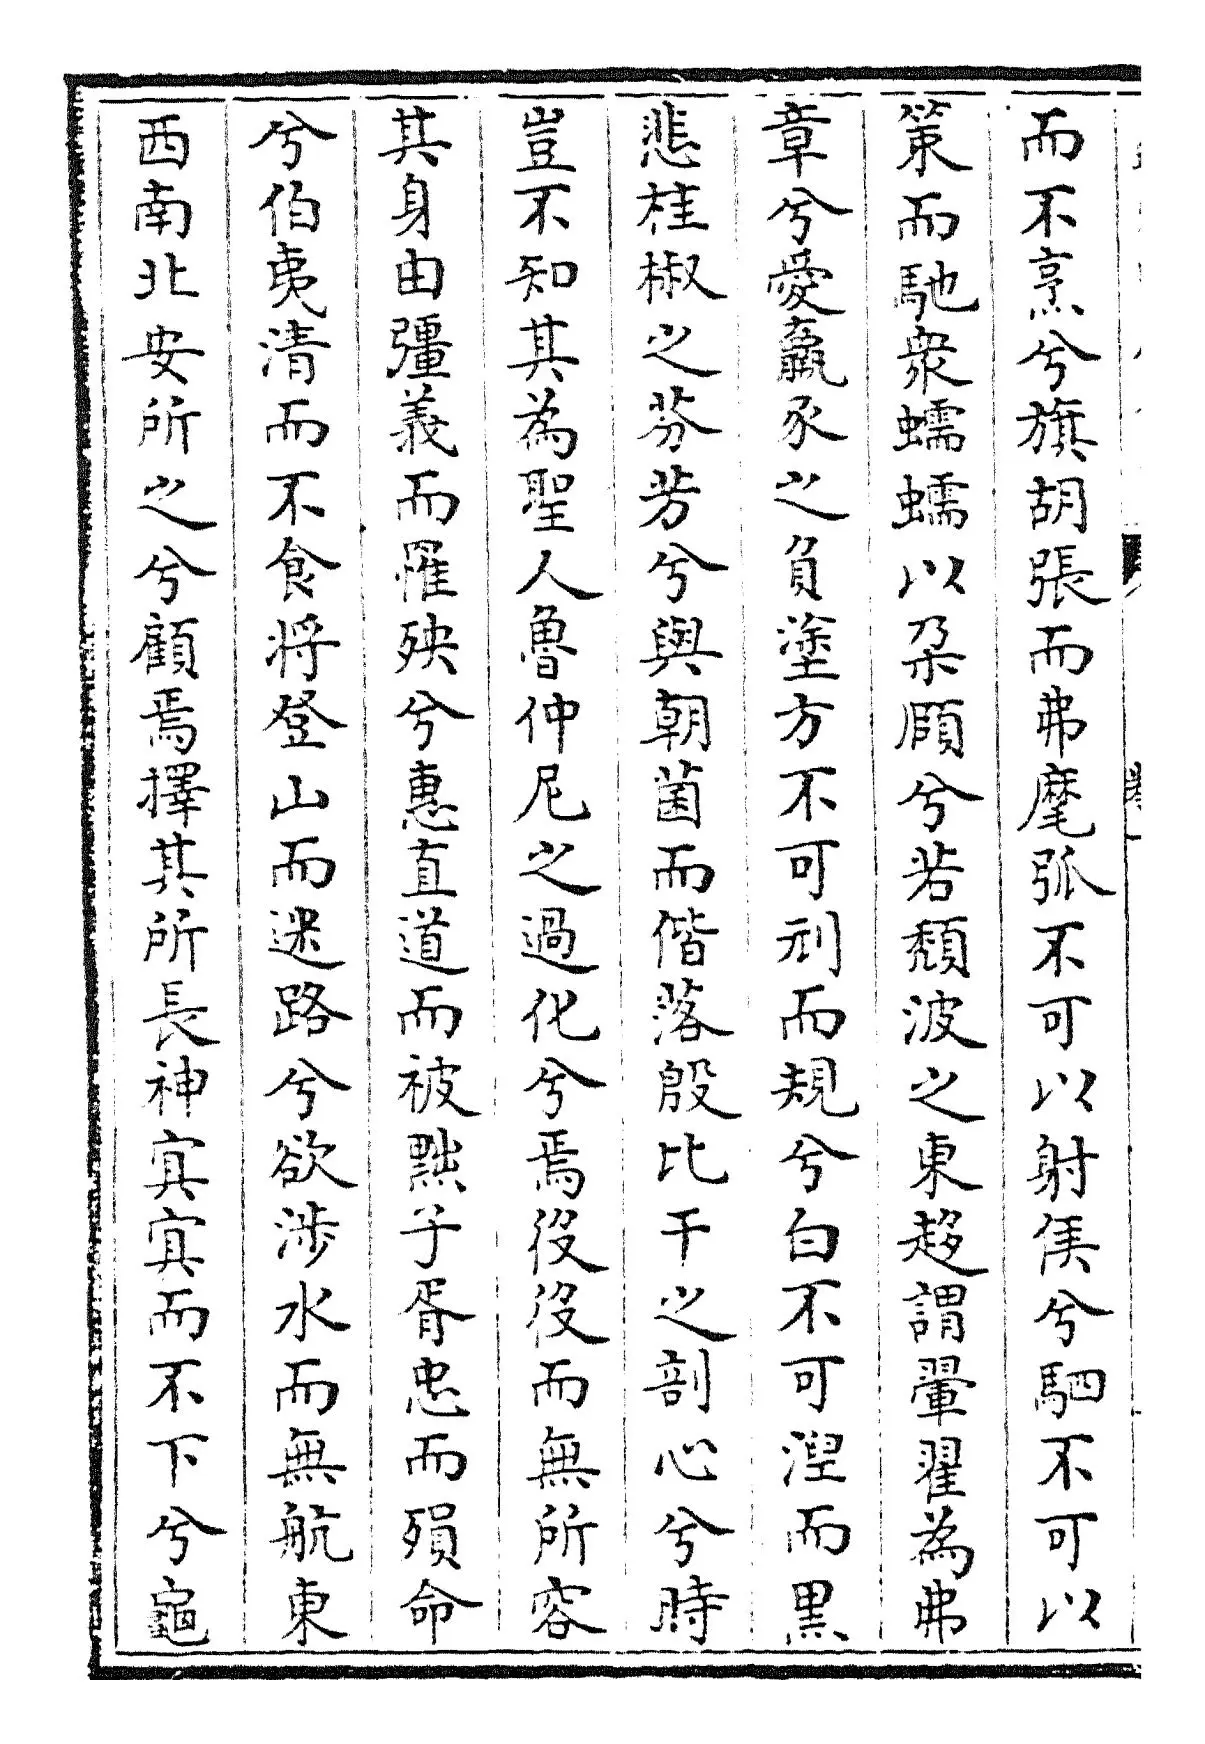 而不烹兮旗胡張而弗麾弧不可以射侯兮駟不可以
策而馳衆蠕蠕以朶頤兮若頹波之東趨謂翬翟為弗
章兮愛羸豕之負塗方不可刓而規兮白不可湼而黒
悲桂椒之芬芳兮與朝菌而偕落殷比干之剖心兮時
豈不知其為聖人魯仲尼之過化兮焉役役而無所容
其身由彊義而罹殃兮惠直道而被黜子胥忠而殞命
兮伯夷清而不食將登山而迷路兮欲涉水而無航東
西南北安所之兮顧焉擇其所長神寘寘而不下兮龜